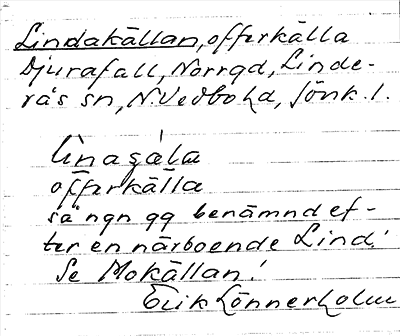 Lindakällan, offerkälla
Djurafall, Norrgd, Linde-
rås sn, N. Vedbo hd, Jönk. l.
offerkälla
så ngn gg benämnd ef-
ter en närboende Lind!
Se Mokällan!
Erik Lönnerholm